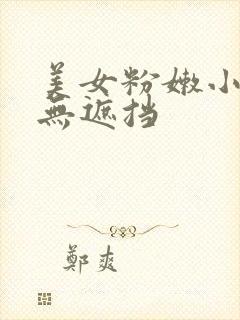 美女粉嫩小
無遮挡
鄭爽